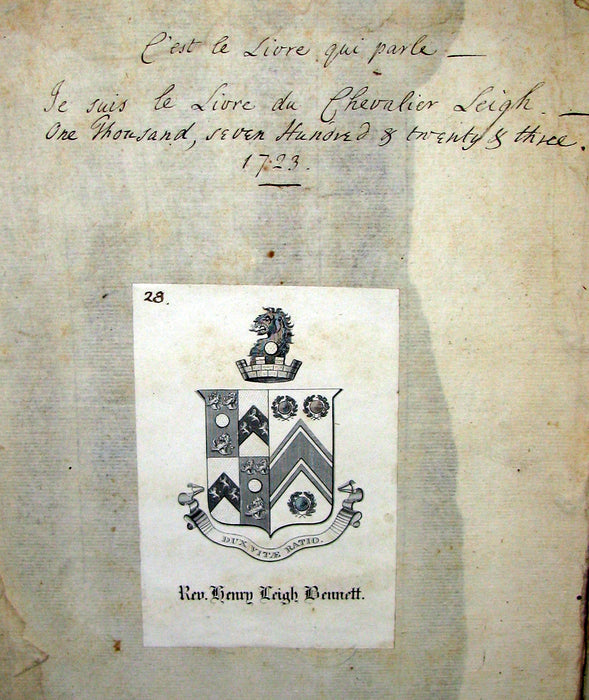 C'est le Livre qui parle —
Je suis le Livre du Chevalier Leigh. —
One Thousand, seven Hundred & twenty & three.
1723.
28.
DUX VITÆ RATIO.
Rev. Henry Leigh Bennett.